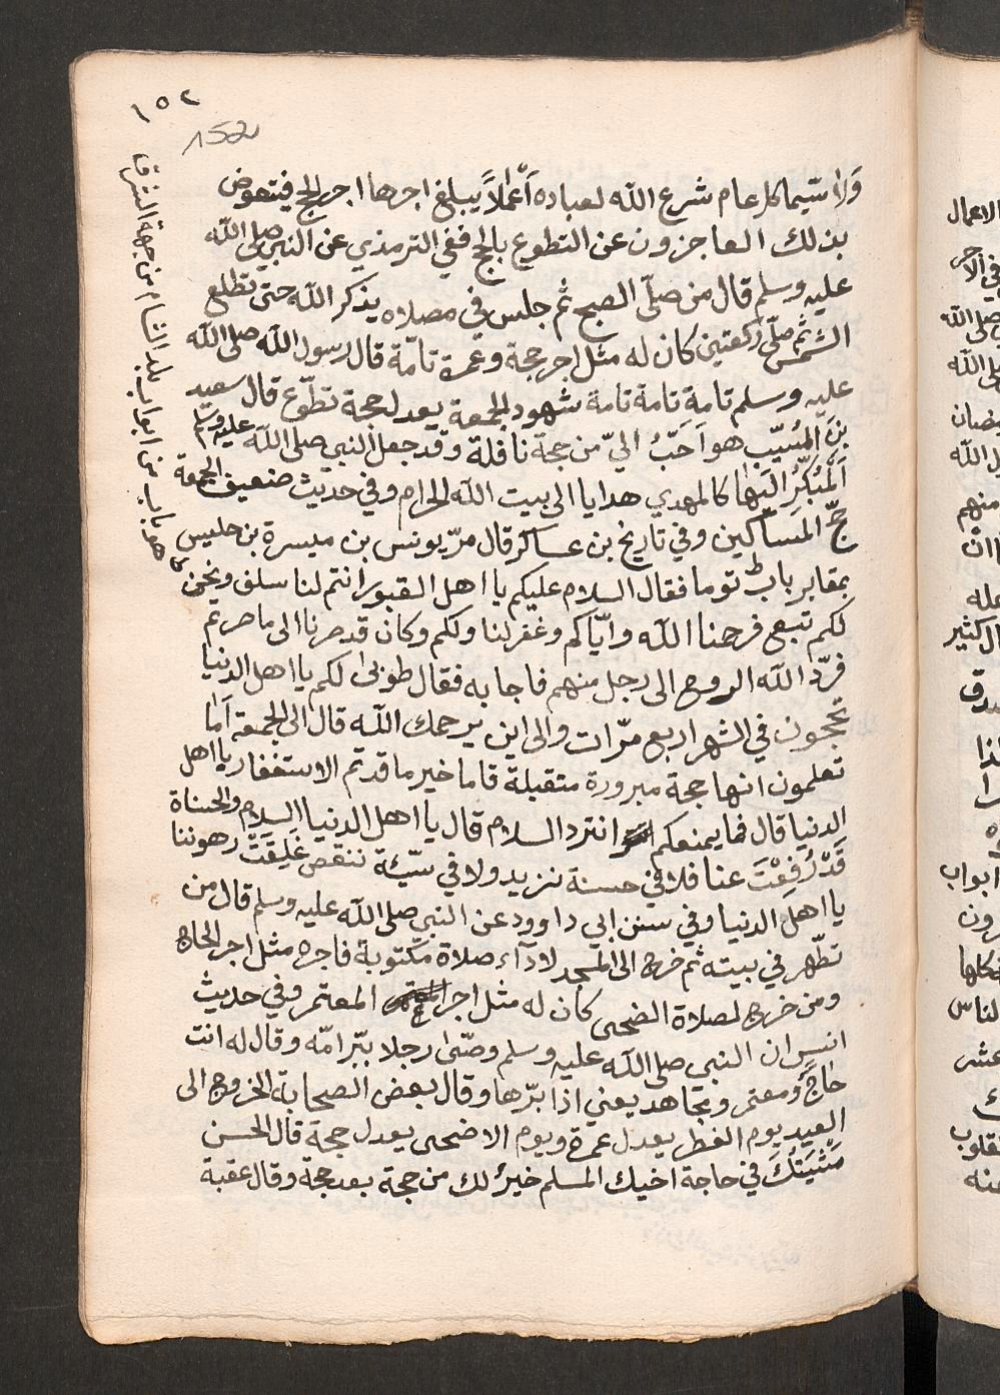 ١٥٢
152
وَلا سَيّما كل عام شرع الله لعباده أَعْمَلاً يبلغ اجرها اجر الحج فيتعوض
بذلك العاجزون عن التطوع بالحج ففي الترمذي عن النبي صلى الله
عليه وسلم قال من صلّى الصبح ثم جلس في مصلاه يذكر الله حتى تطلع
الشمس ثم صلّى ركعتين كان له مثل اجر حجة وعمرة تامّة قال رسول الله صلى الله
عليه وسلم تامة تامة تامة شهود الجمعة يعدل حجة تطوّع قال سعيد
بن المُسَيّب هو اَحَبُّ اليّ من حجة نافلة وقد جعل النبي صلى الله عليه وسلم
اَلْمُبَكِّرُ اليَها كالمهدي هدايا الى بيت الله الحرام وفي حديث ضعيف الجمعة
حجّ المَساكين وفي تاريخ بن عساكر قال مرّ يونس بن ميسرة بن حليس
بمقابر باب توما فقال السلام عليكم يا اهل القبور انتم لنا سلف ونحن
لكم تبع فرحمنا الله وايّاكم وغفر لنا ولكم وكان قد صرنا الى ما صرتم
فردّ الله الروح الى رجل منهم فاجابه فقال طوبى لكم يا اهل الدنيا
تحجون في الشهر اربع مرّات والى اين يرحمك الله قال الى الجمعة اَما
تعلمون انها حجة مبرورة متقبلة قاما خير ما قدتم الاستغفار يا اهل
الدنيا قال فما يمنعكم انترد السلام قال يا اهل الدنيا السلام والحسناة
قَدْ رُفِعْتَ عنا فلا في حسنة نزيد ولا في سيّئة ننقص غَلِقَتْ رهوننا
يا اهلَ الدنيا وفي سنن ابي داوود عن النبي صلى الله عليه وسلم قال من
تطّهر في بيته ثم خرج الى المسجد لادآء صلاة مكتوبة فاجره مثل اجر الحاج
ومن خرج لصلاة الضحى كان له مثل اجر المعتمر وفي حديث
انس ان النبي صلى الله عليه وسلم وصّى رجلا ببّر امّه وقال له انت
حاجٌّ ومعتمر ومجاهد يعني اذا برّها وقال بعض الصحابة الخروج الى
العيد يوم الفطر يعدل عمرة ويوم الاضحى يعدل حجة قال الحسن
مَشْيَتُكَ في حاجة اخيك المسلم خيرٌ لك من حجة بعد حجة وقال عقبة
هو باب من ابواب بلد الشام من جهة الشرق